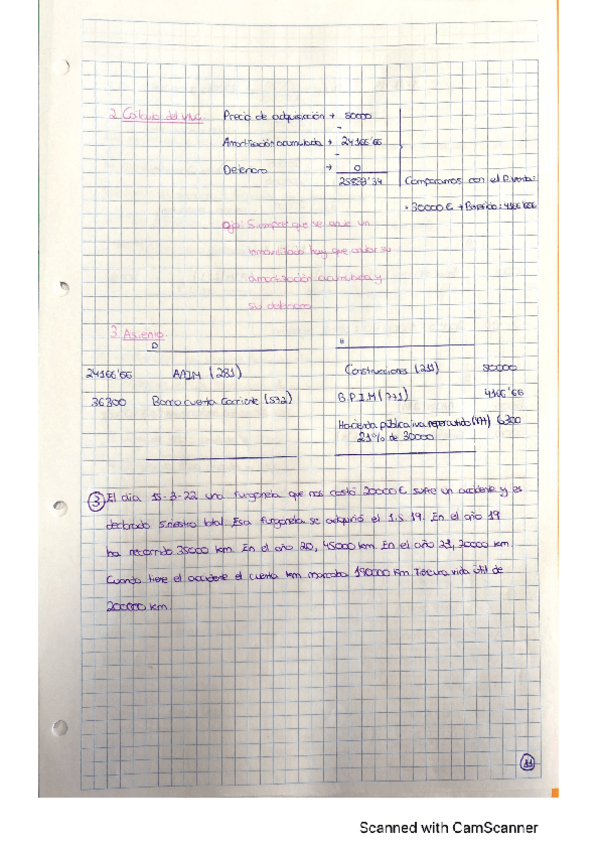 2. Cálculo del VNC: Precio de adquisición → 50000
-
Amortización acumulada → 24166'66
-
Deterioro → 0
25833'34 Comparamos con el P.venta:
• 30000 € → Beneficio: 4166'666
Ojo: Siempre que se vende un
inmovilizado hay que anular su
amortización acumulada y
su deterioro
3. Asiento
D H
24166'66 AAIM (281) Construcciones (211) 50000
36300 Banco cuenta corriente (572) B.P.I.M (771) 4166'66
Hacienda pública iva repercutido (477) 6300
21% de 30000
③ El día 15-3-22 una furgoneta que nos costó 20000 € sufre un accidente y es
declarado siniestro total. Esa furgoneta se adquirió el 1.5.19. En el año 19
ha recorrido 35000 km. En el año 20, 45000 km. En el año 21, 30000 km.
Cuando tiene el accidente el cuenta km marcaba 190000 km. Tiene una vida útil de
200000 km.
11
Scanned with CamScanner